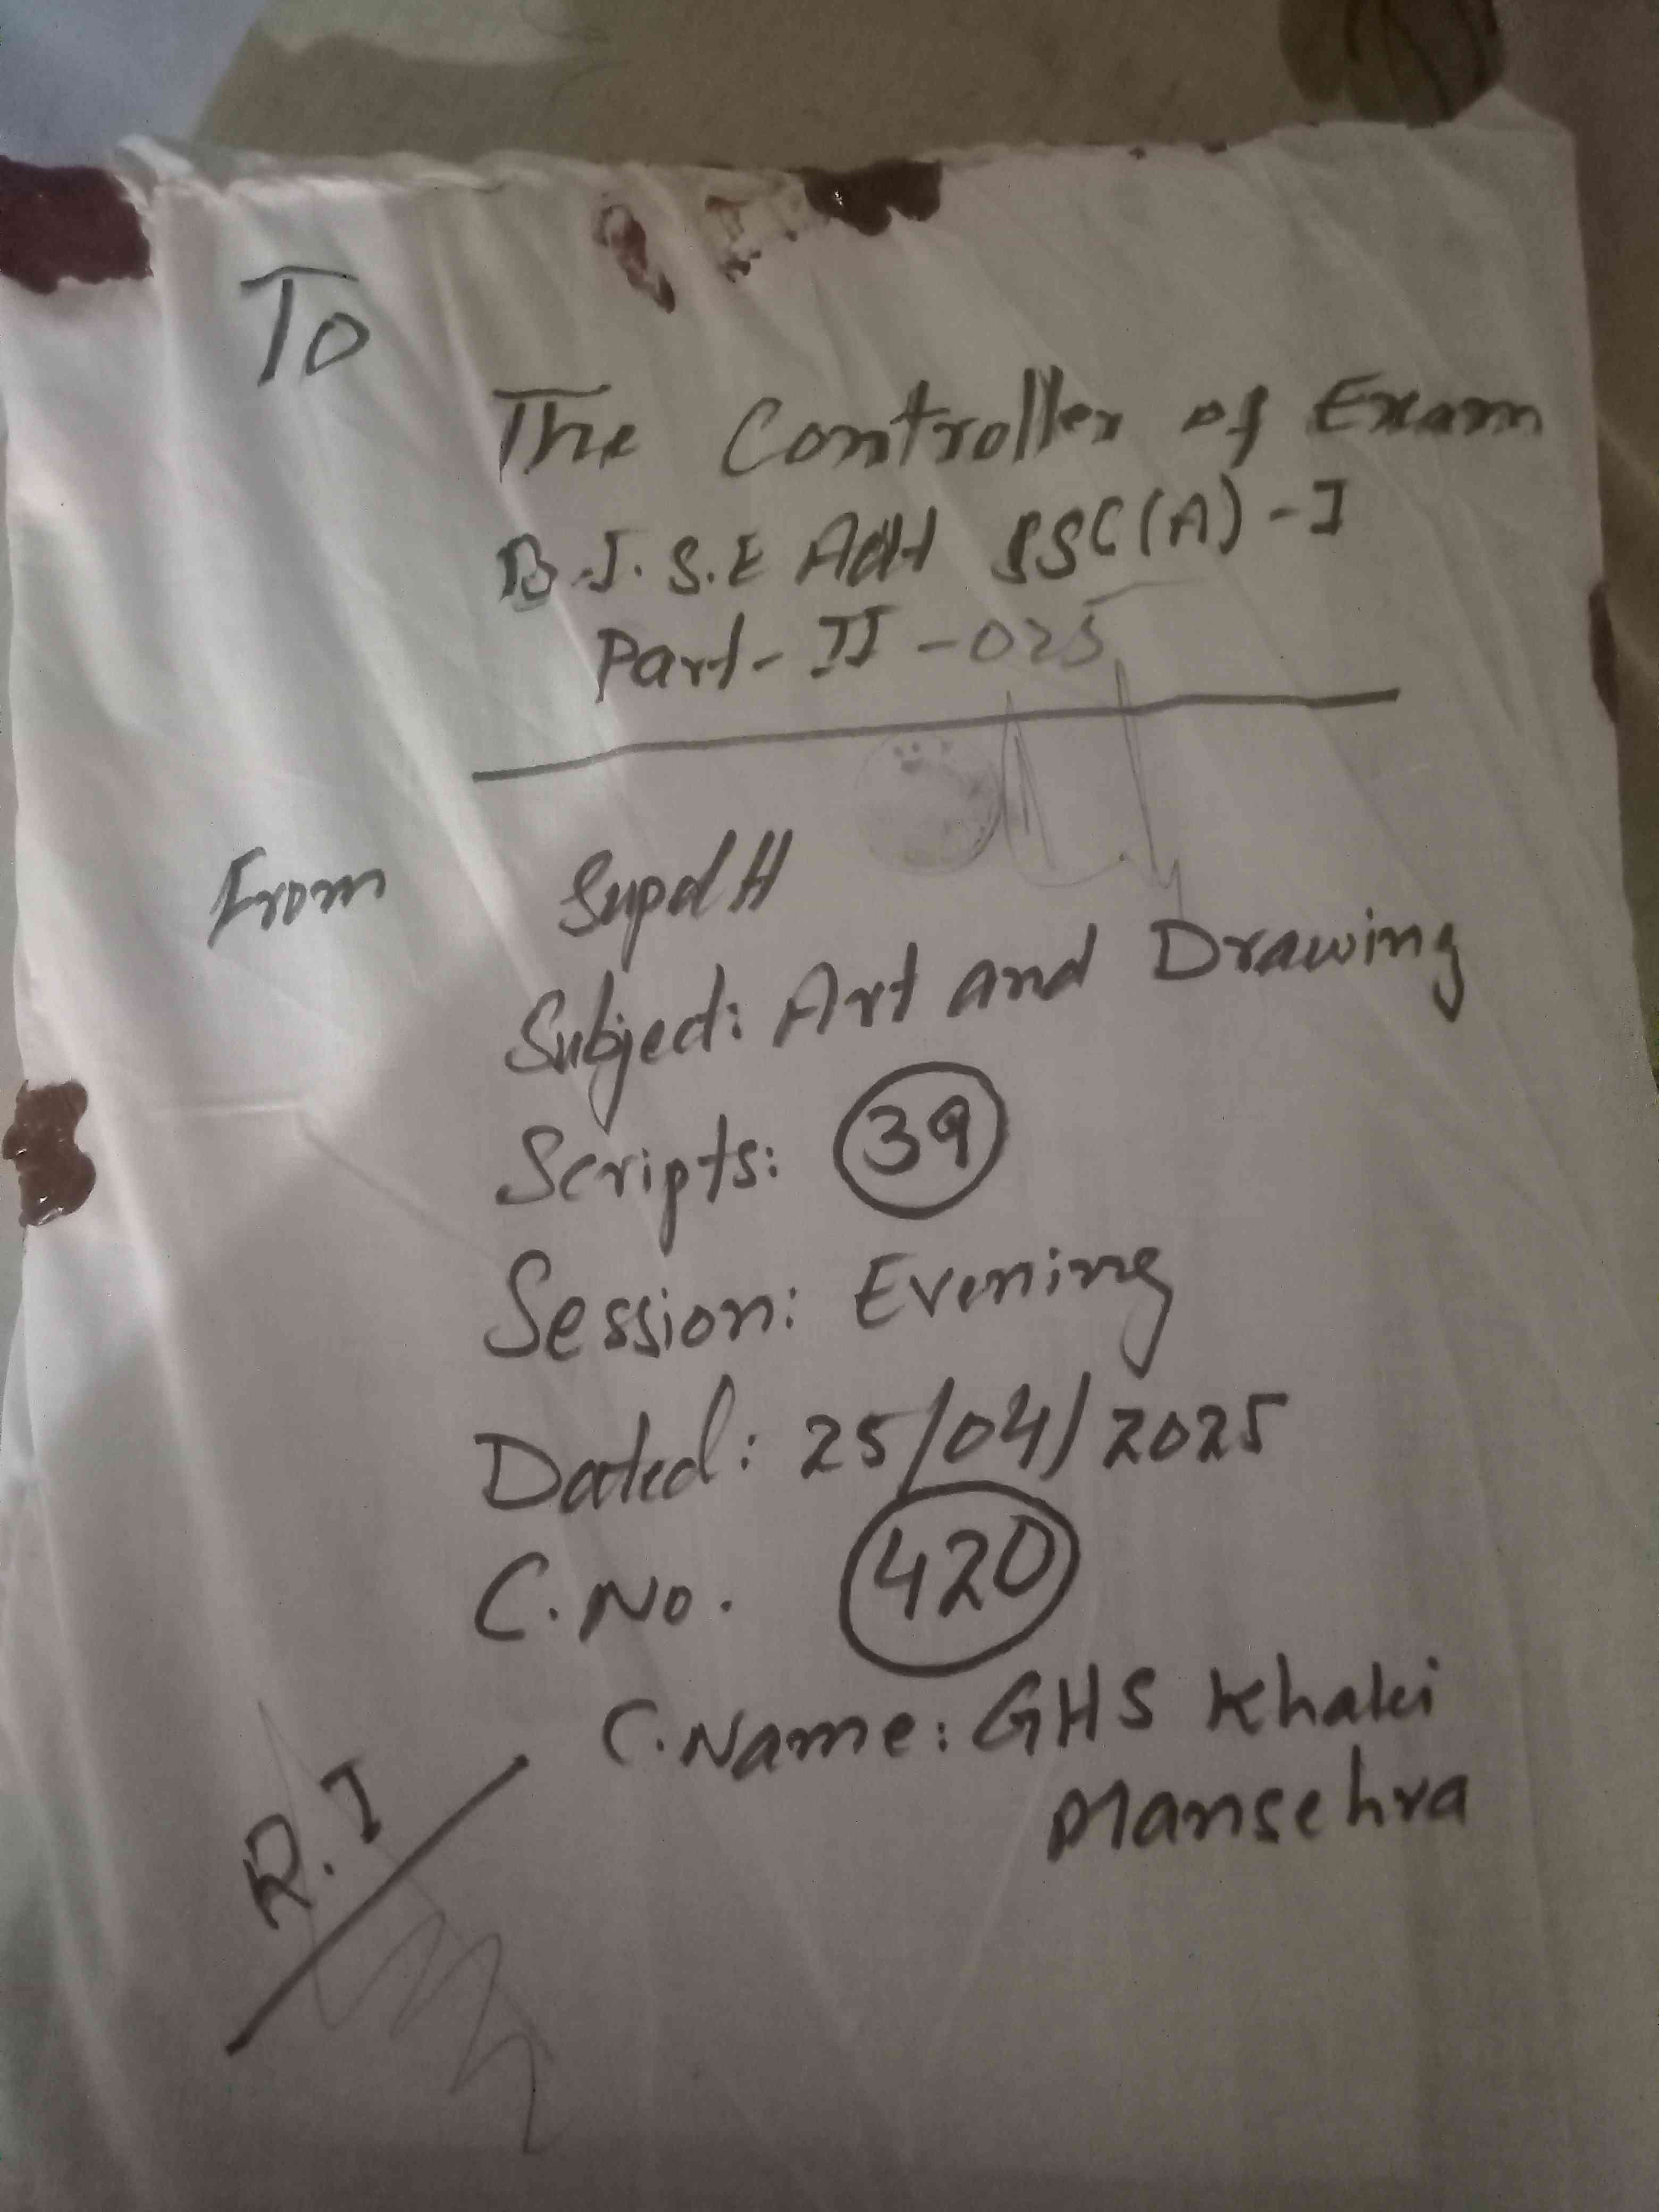 To
The Controller of Exam
B.I.S.E Atd SSC(A)-I
Part-II-025
From Supdtt
Subject: Art and Drawing
Scripts: 39
Session: Evening
Dated: 25/04/2025
C.No. 420
C.Name: GHS Khaki
Mansehra
R.I